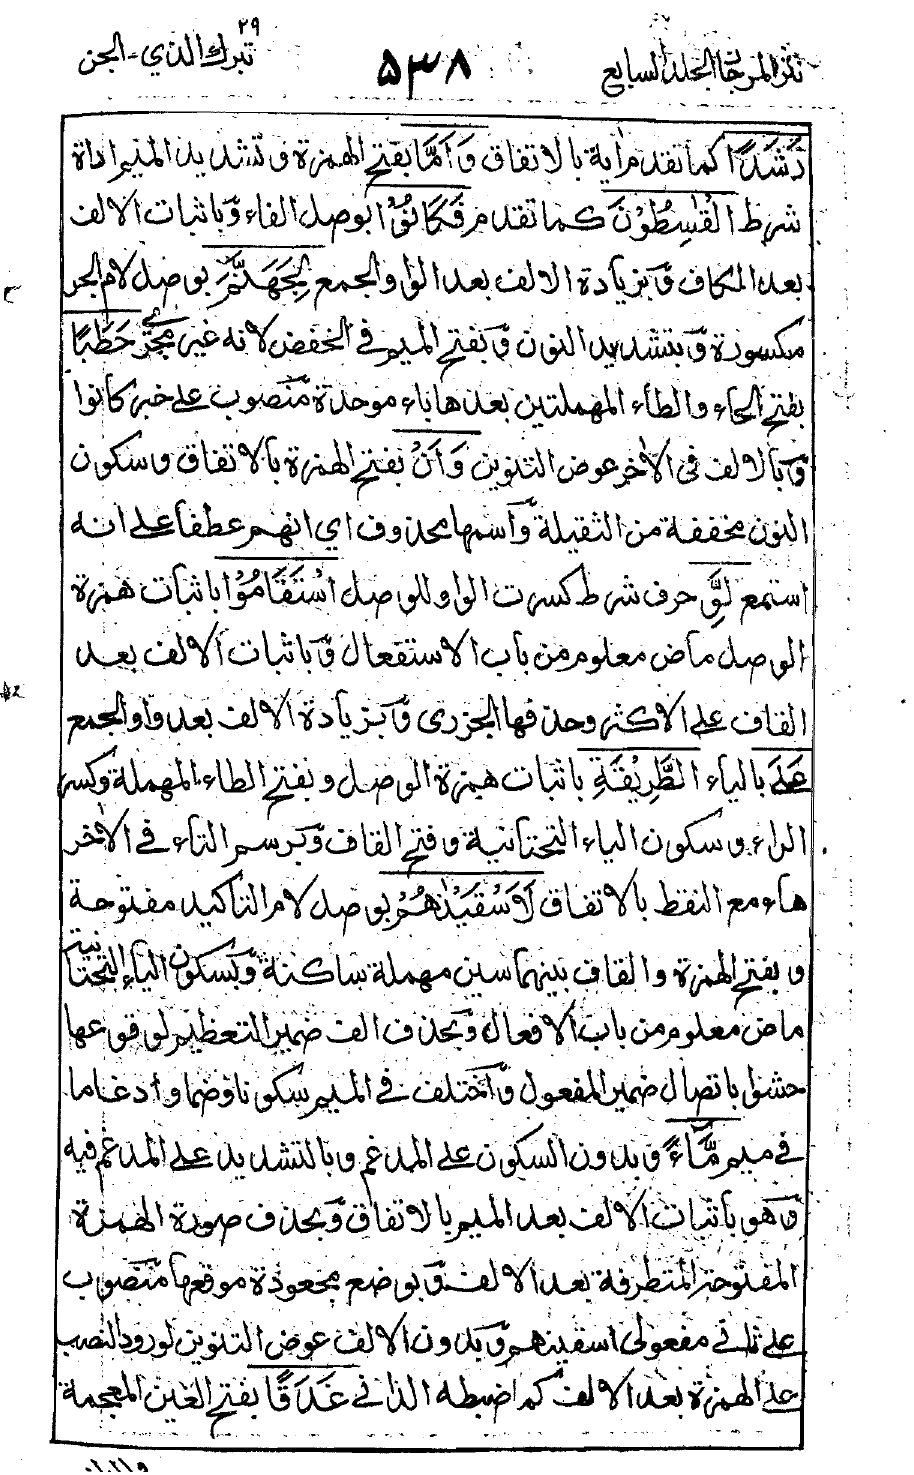 نثر المرجان المجلد السابع
٥٣٨
٢٩
تبرك الذي - الجن
رَشَدًا كما تقدم رأية بالاتفاق وَاَمَّا بفتح الهمزة وتشديد الميم اداة
شرط الْقٰسِطُوْنَ كما تقدم فَكَانُوْا بوصل الفاء وباثبات الالف
بعد الكاف وبزيادة الالف بعد الواو الجمع لِجَهَنَّمَ بوصل لام الجر
مكسورة وبتشديد النون وبفتح الميم في الخفض لانه غير مجرى حَطَبًا
بفتح الحاء والطاء المهملتين بعدها باء موحدة منصوب على خبر كانوا
وبالالف في الاخر عوض التنوين وَاَنْ بفتح الهمزة بالاتفاق وسكون
النون مخففة من الثقيلة واسمها محذوف اي انهم عطفا على انه
استمع لَوِ حرف شرط كسرت الواو للوصل اسْتَقَامُوْا باثبات همزة
الوصل ماض معلوم من باب الاستفعال وباثبات الالف بعد
القاف على الاكثر وحذفها الجزرى وبزيادة الالف بعد واو الجمع
عَلَى بالياء الطَّرِيْقَةِ باثبات همزة الوصل وبفتح الطاء المهملة وكسر
الراء وسكون الياء التحتانية وفتح القاف وبرسم التاء في الاخر
هاء مع النقط بالاتفاق لَاَسْقَيْنٰهُمْ بوصل لام التاكيد مفتوحة
وبفتح الهمزة والقاف بينهما سين مهملة ساكنة وبسكون الياء التحتانية
ماض معلوم من باب الافعال وبحذف الف ضمير التعظيم لوقوعها
حشوا باتصال ضمير المفعول واختلف في الميم سكونا وضما وادغاما
في ميم مَّاءً وبدون السكون على المدغم وبالتشديد على المدغم فيه
وهو باثبات الالف بعد الميم بالاتفاق وبحذف صورة الهمزة
المفتوحة المتطرفة بعد الالف وبوضع مجعودة موقعها منصوب
على ثاني مفعولي اسقينهم وبدون الالف عوض التنوين لورود النصب
على الهمزة بعد الالف كما ضبطه الداني غَدَقًا بفتح الغين المعجمة